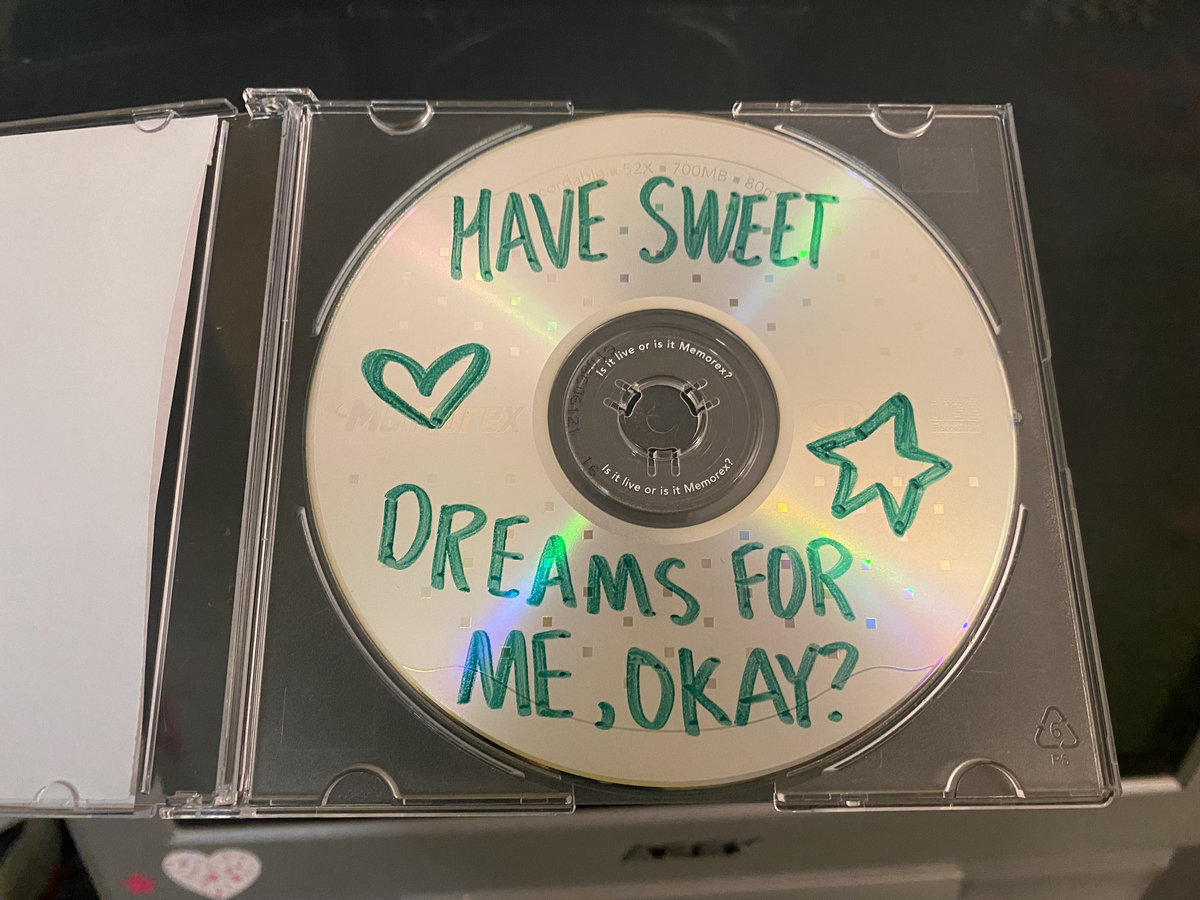 Recordable ▪ 52X ▪ 700MB ▪ 80m
HAVE SWEET
Is it live or is it Memorex?
Memorex
Is it live or is it Memorex?
DREAMS FOR
ME, OKAY?
6
PS